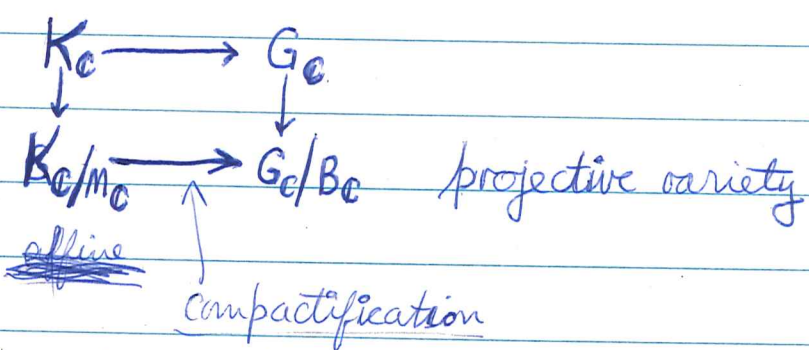 K_C → G_C
↓ ↓
K_C/M_C → G_C/B_C projective variety
affine
compactification